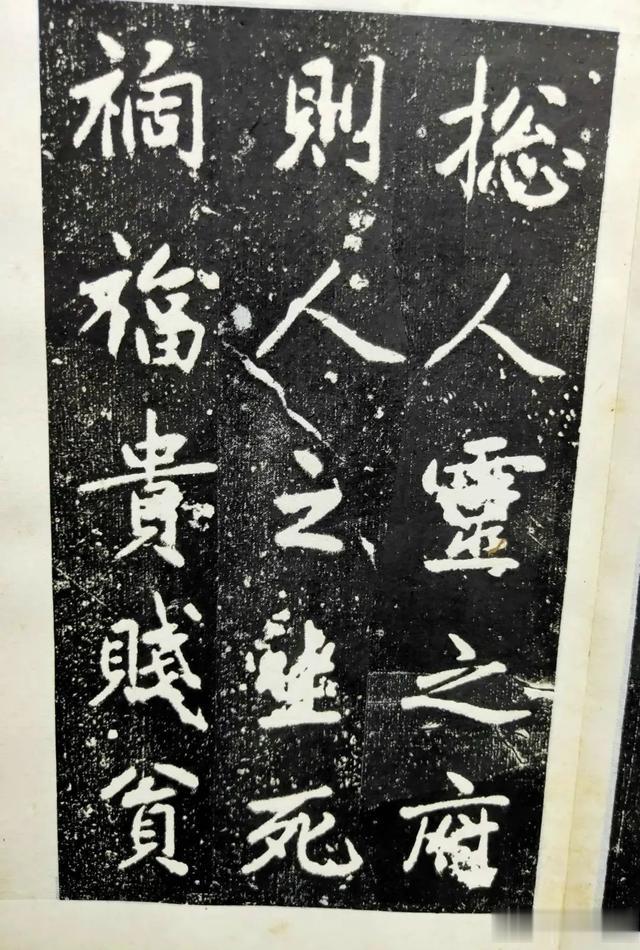 揔人靈之府
則人之生死
禍福貴賤貧